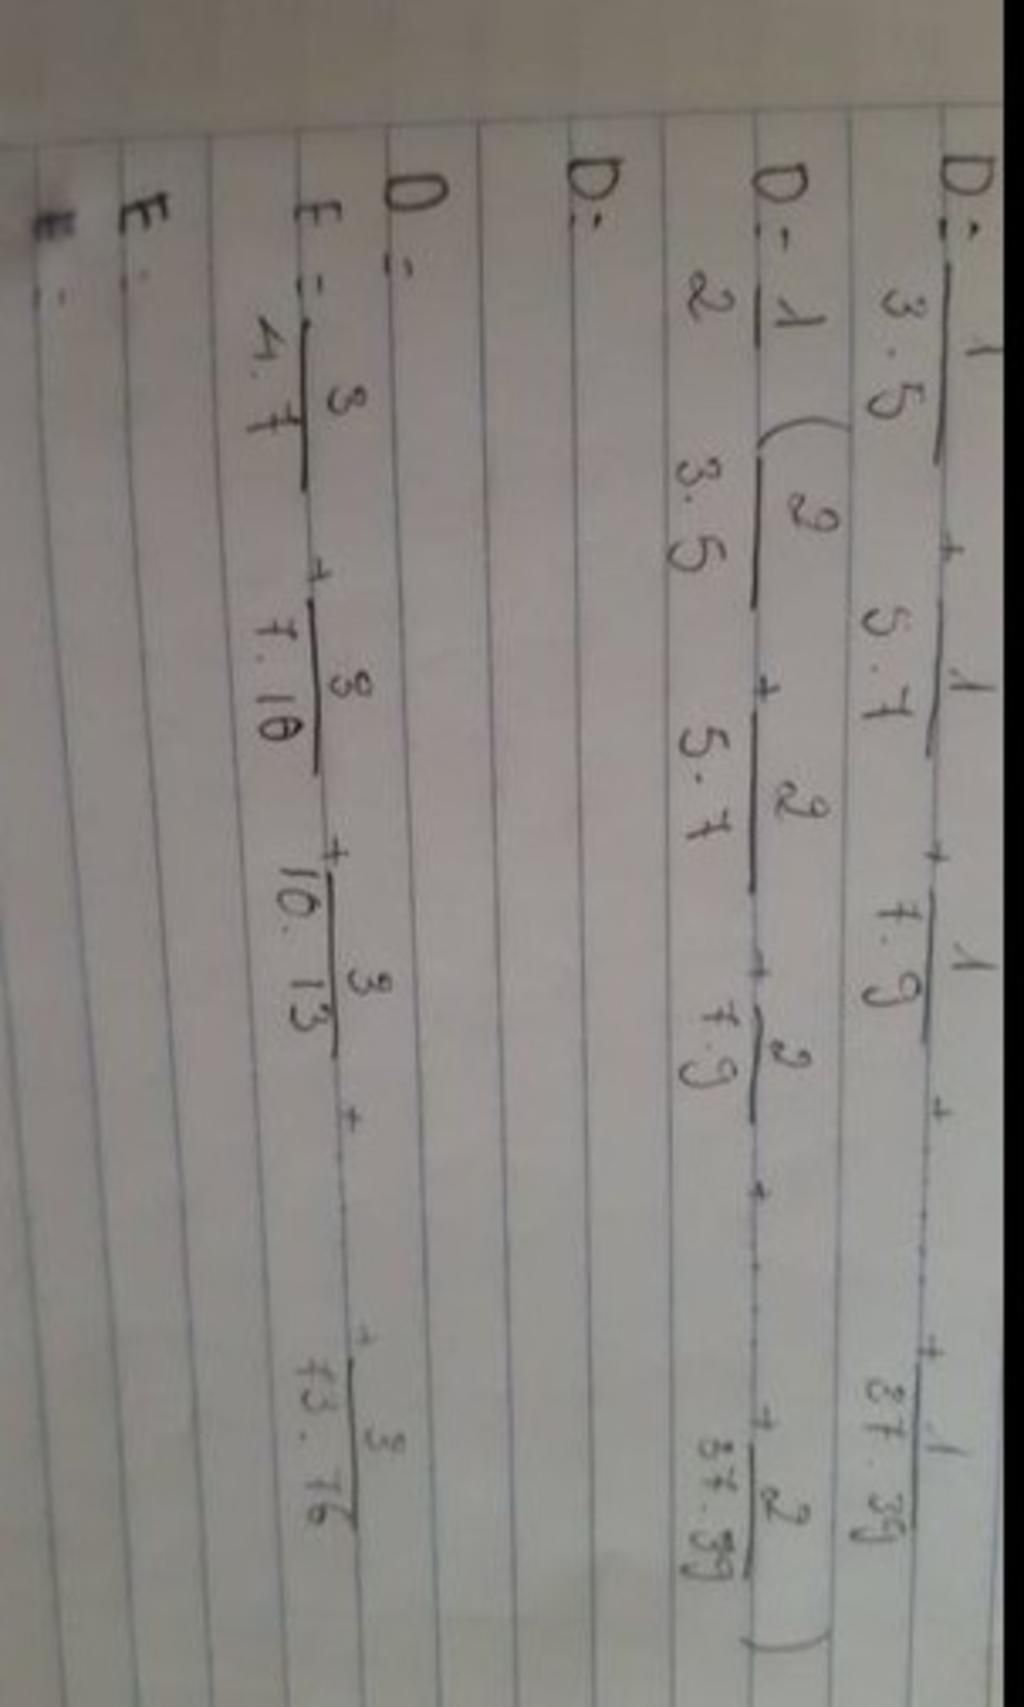 D = 1/3.5 + 1/5.7 + 1/7.9 + ..... + 1/37.39
D = 1/2 ( 2/3.5 + 2/5.7 + 2/7.9 + ..... + 2/37.39 )
D =
D =
E = 3/4.7 + 3/7.10 + 3/10.13 + ..... + 3/73.76
E =
E =